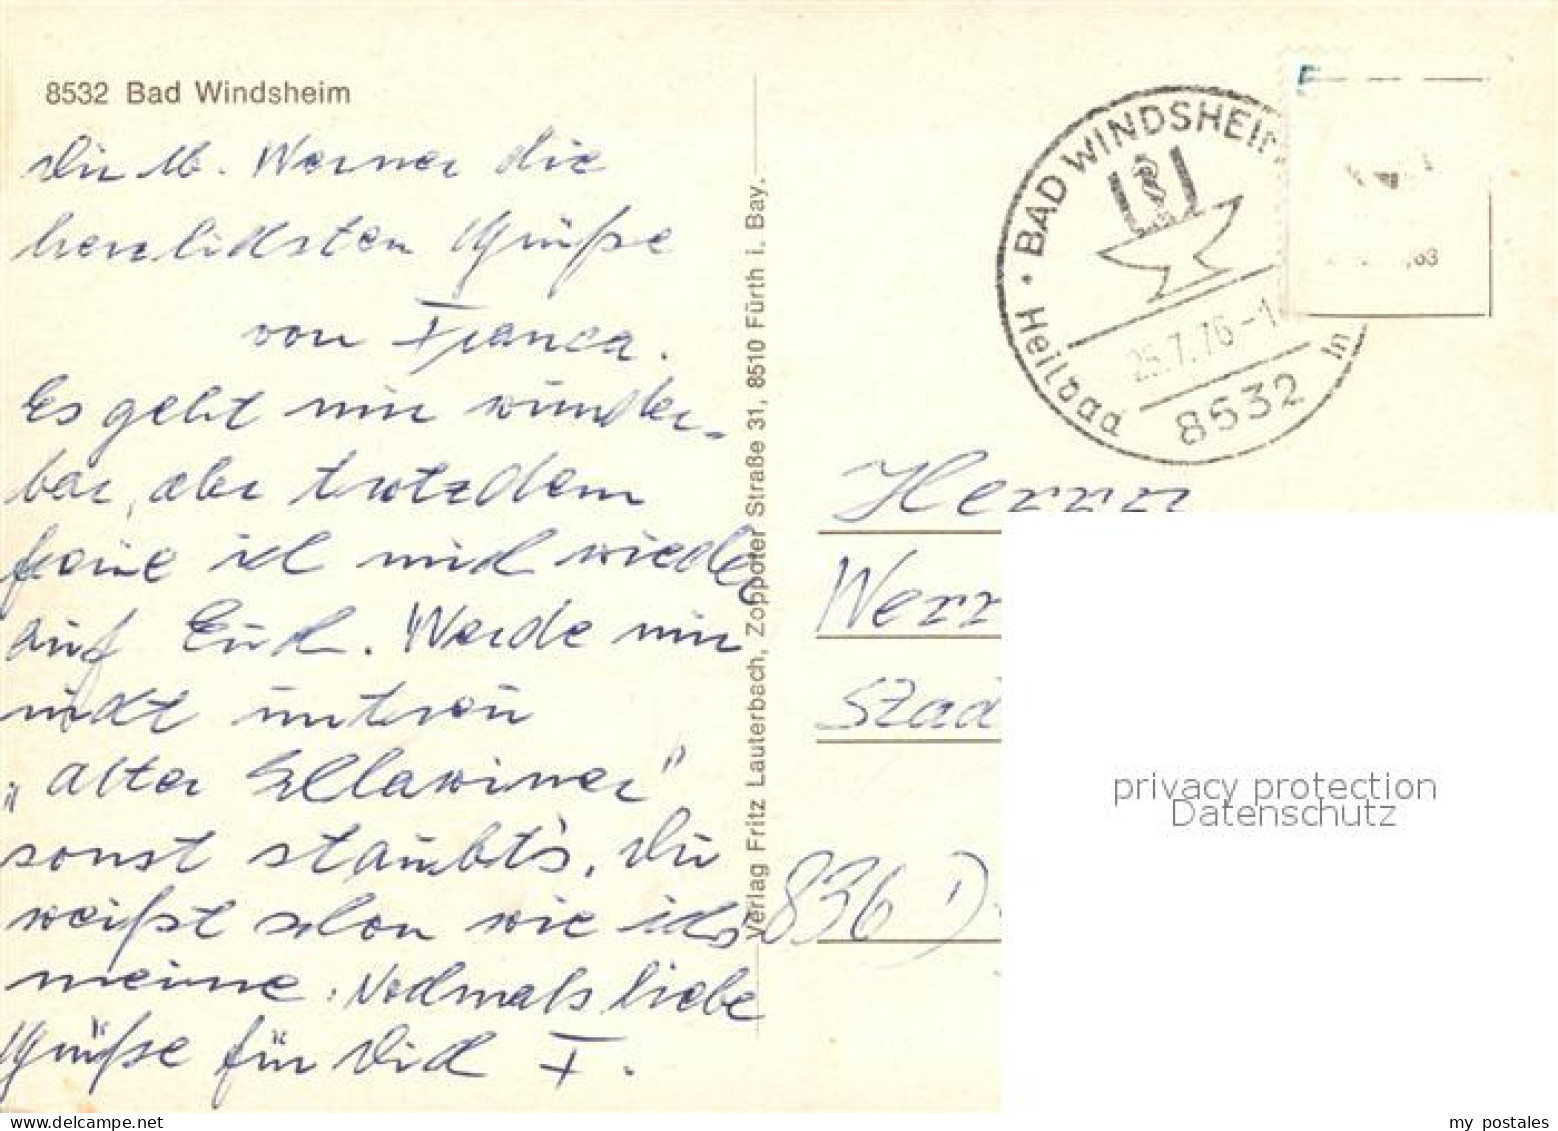 8532 Bad Windsheim
Dir lb. Werner die
herzlichsten Grüße
von Franca.
Es geht mir wunder-
bar, aber trotzdem
freue ich mich wieder
auf Euch. Werde mir
nicht untreu
"alter"
sonst staubt's. Du
weißt schon wie ichs
meine. Nochmals liebe
Grüße für Dich F.
Verlag Fritz Lauterbach, Zoppoter Straße 31, 8510 Fürth i. Bay.
BAD WINDSHEIM
25.7.76-1
8532
Heilbad in
63
Herrn
Wern
Stad
836 D
privacy protection
Datenschutz
my postales